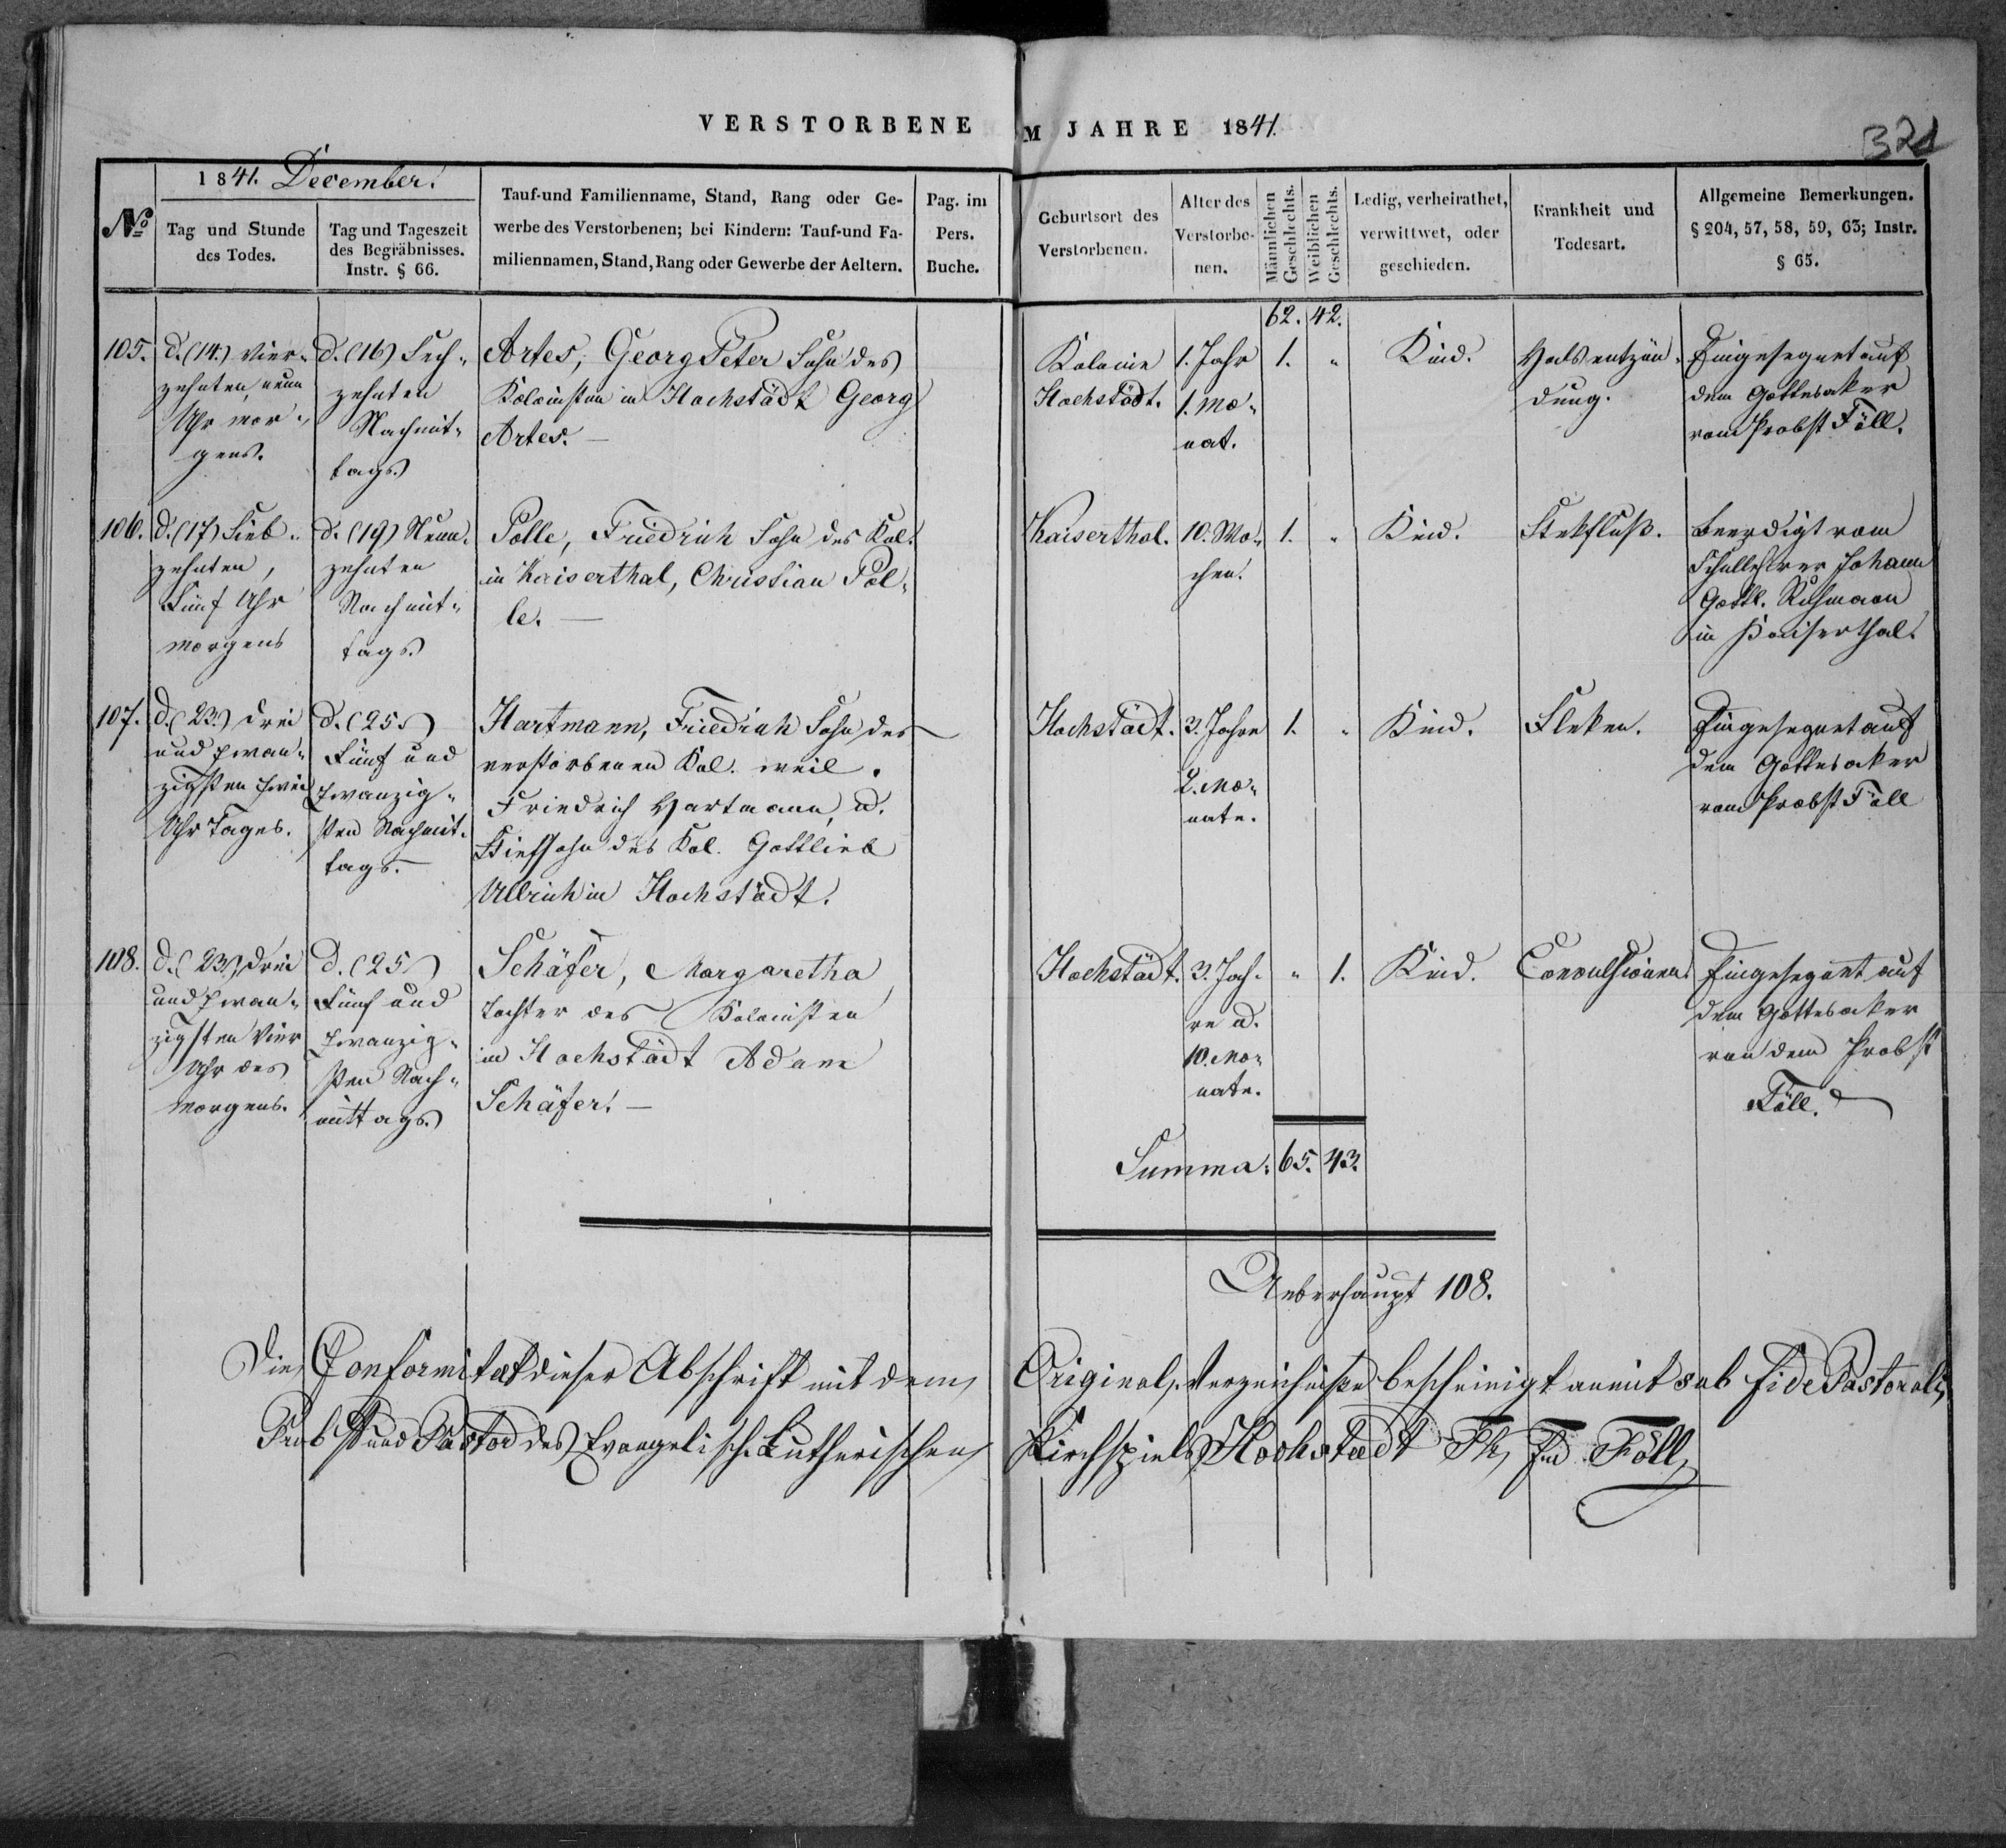 VERSTORBENE IM JAHRE 1841.
321
1841. December.
No
Tag und Stunde
des Todes.
Tag und Tageszeit
des Begräbnisses.
Instr. § 66.
Tauf-und Familienname, Stand, Rang oder Ge-
werbe des Verstorbenen; bei Kindern: Tauf-und Fa-
miliennamen, Stand, Rang oder Gewerbe der Aeltern.
Pag. im
Pers.
Buche.
Geburtsort des
Verstorbenen.
Alter des
Verstorbe-
nen.
Männlichen
Geschlechts.
Weiblichen
Geschlechts.
Ledig, verheirathet,
verwittwet, oder
geschieden.
Krankheit und
Todesart.
Allgemeine Bemerkungen.
§ 204, 57, 58, 59, 63; Instr.
§ 65.
62. 42.
105.
d. (14.) Vier-
zehnten, neun
Uhr mor-
gens.
d. (16) Sech-
zehnten
Nachmit-
tags.
Artes, Georg Peter Sohn des
Kolonisten in Hochstädt Georg
Artes. —
Kolonie
Hochstädt.
1. Jahr
1. Mo-
nat.
1. "
Kind.
Halsentzün-
dung.
Eingesegnet auf
dem Gottesaker
vom Probst Föll.
106.
d. (17) Sieb-
zehnten,
Fünf Uhr
morgens
d. (19) Neun-
zehnten
Nachmit-
tags.
Polle, Friedrich Sohn des Kol.
in Kaiserthal, Christian Pol-
le. —
Kaiserthal.
10. Wo-
chen.
1. "
Kind.
Stekfluß.
Beerdigt vom
Schullehrer Johann
Gottl.
in Kaiserthal.
107.
d. (23.) drei
und zwan-
zigsten zwei
Uhr Tages.
d. (25.)
Fünf und
zwanzig-
sten Nachmit-
tags. —
Hartmann, Friedrich Sohn des
verstorbenen Kol. weil.
Friedrich Hartmann, u.
Stiefsohn des Kol. Gottlieb
Ullrich in Hochstädt.
Hochstädt.
3. Jahre
2. Mo-
nate.
1. "
Kind.
Fleken.
Eingesegnet auf
dem Gottesaker
vom Probst Föll
108.
d. (23.) drei
und zwan-
zigsten Vier
Uhr des
Morgens.
d. (25)
Fünf und
zwanzig-
sten Nach-
mittags.
Schäfer, Margaretha
Tochter des Kolonisten
in Hochstädt Adam
Schäfer. —
Hochstädt.
3. Jah-
re u.
10. Mo-
nate.
" 1.
Kind.
Convulsionen
Eingesegnet auf
dem Gottesaker
von dem Probst
Föll.
Summa. 65. 43.
Ueberhaupt 108.
Die Conformitæt dieser Abschrift mit dem Original-Verzeichniße bescheinigt anmit sub fide Pastorali,
Probst und Pastor des Evangelisch-Lutherischen Kirchspiels Hochstædt Föll,